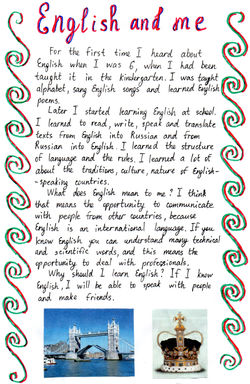 English and me
For the first time I heard about
English when I was 6, when I had been
taught it in the kindergarten. I was taught
alphabet, sang English songs and learned English
poems.
Later I started learning English at school.
I learned to read, write, speak and translate
texts from English into Russian and from
Russian into English. I learned the structure
of language and the rules. I learned a lot of
about the traditions, culture, nature of English-
-speaking countries.
What does English mean to me? I think
that means the opportunity to communicate
with people from other countries, because
English is an international language. If you
know English you can understand many technical
and scientific words, and this means the
opportunity to deal with professionals.
Why should I learn English? If I know
English, I will be able to speak with people
and make friends.